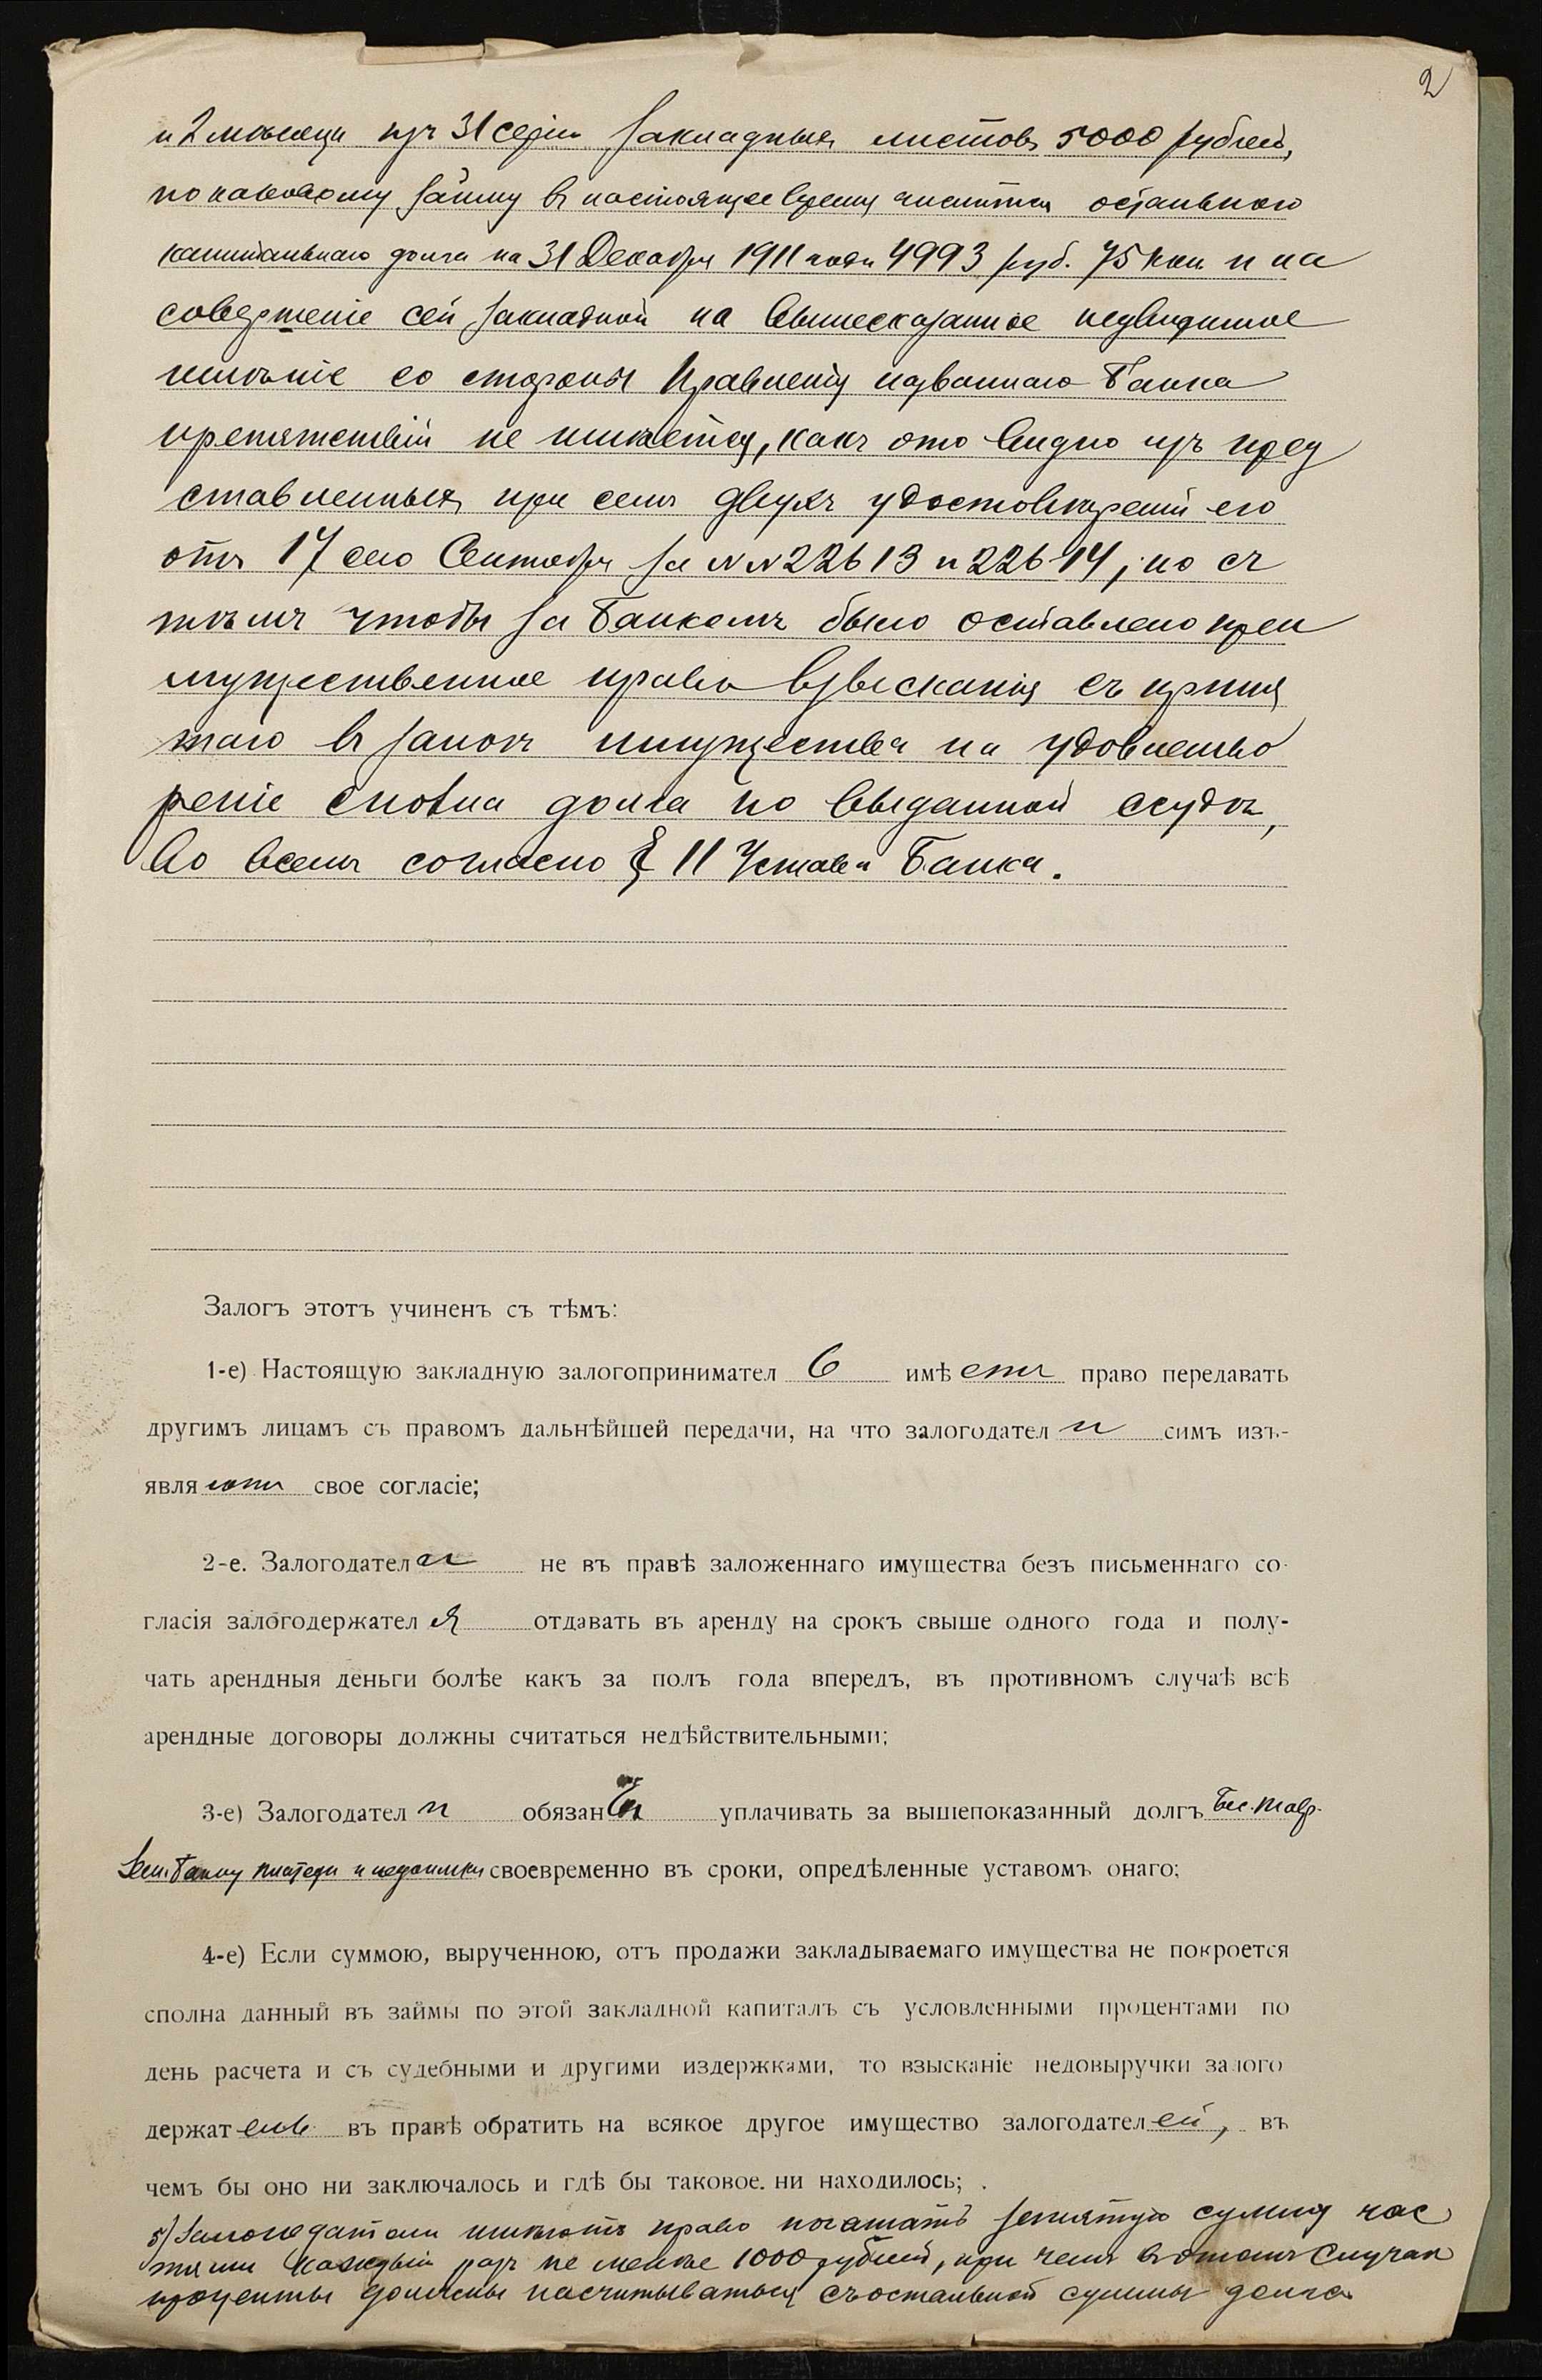 2
и 2 мѣсяца изъ 31 серіи закладныхъ листовъ 5000 рублей,
по каковому займу въ настоящее время числится остальнаго
капитальнаго долга на 31 Декабря 1911 года 4993 руб. 75 коп. и на
совершеніе сей закладной на вышесказанное недвижимое
имѣніе со стороны Правленія названнаго Банка
препятствій не имѣется, какъ это видно изъ пред
ставленныхъ при семъ двухъ удостовѣреній его
отъ 17 сего Сентября за №№ 22613 и 22614, но съ
тѣмъ чтобы за Банкомъ было оставлено преи
мущественное право взысканія съ приня
таго въ залогъ имущества на удовлетво
реніе сполна долга по выданной ссудѣ,
во всемъ согласно § 11 Устава Банка.
Залогъ этотъ учиненъ съ тѣмъ:
1-е) Настоящую закладную залогопринимател ь имѣ етъ право передавать
другимъ лицамъ съ правомъ дальнѣйшей передачи, на что залогодател и симъ изъ-
явля ютъ свое согласіе;
2-е. Залогодател и не въ правѣ заложеннаго имущества безъ письменнаго со-
гласія залогодержател я отдавать въ аренду на срокъ свыше одного года и полу-
чать арендныя деньги болѣе какъ за полъ года впередъ, въ противномъ случаѣ всѣ
арендные договоры должны считаться недѣйствительными;
3-е) Залогодател и обязан ы уплачивать за вышепоказанный долгъ Бес. Тавр.
Зем. Банку платежи и недоимки своевременно въ сроки, опредѣленные уставомъ онаго;
4-е) Если суммою, вырученною, отъ продажи закладываемаго имущества не покроется
сполна данный въ займы по этой закладной капиталъ съ условленными процентами по
день расчета и съ судебными и другими издержками, то взысканіе недовыручки залого
держат ель въ правѣ обратить на всякое другое имущество залогодател ей, въ
чемъ бы оно ни заключалось и гдѣ бы таковое. ни находилось;
5) Залогодатели имѣютъ право погашать занятую сумму час
тями каждый разъ не менѣе 1000 рублей, при чемъ въ этомъ случаѣ
проценты должны насчитываться съ остальной суммы долга